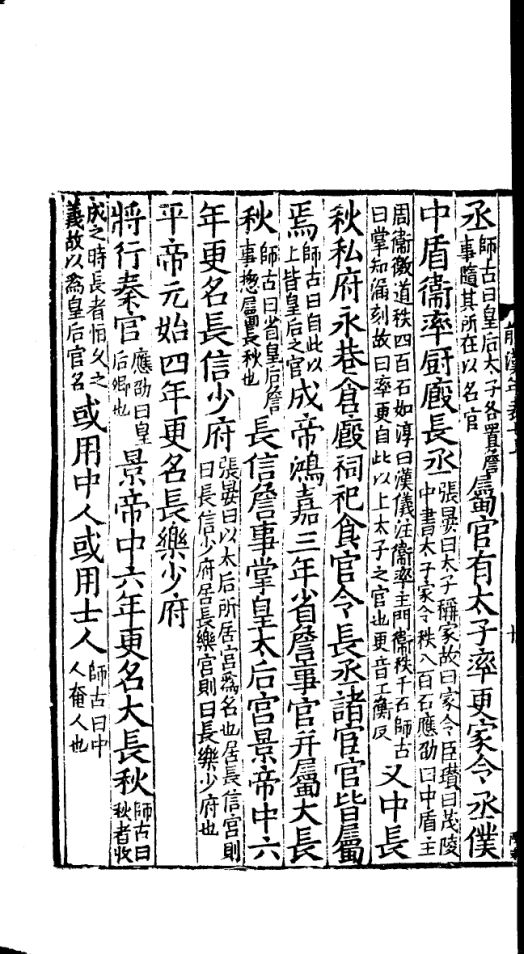 丞師古曰皇后太子各置詹事隨其所在以名官屬官有太子率更家令丞僕
中盾衞率厨廄長丞張晏曰太子稱家故曰家令臣瓚曰茂陵中書太子家令秩八百石應劭曰中盾主
周衞徼道秩四百石如淳曰漢儀注衞率主門衞秩千石師古曰掌知漏刻故曰率更自此以上太子之官也更音工衡反又中長
秋私府永巷倉廄祠祀食官令長丞諸宦官皆屬
焉師古曰自此以上皆皇后之官成帝鴻嘉三年省詹事官并屬大長
秋師古曰省皇后詹事摠屬長秋也長信詹事掌皇太后宮景帝中六
年更名長信少府張晏曰以太后所居宮爲名也居長信宮則曰長信少府居長樂宮則曰長樂少府也
平帝元始四年更名長樂少府
將行秦官應劭曰皇后卿也景帝中六年更名大長秋師古曰秋者收
成之時長者恒久之義故以爲皇后官名或用中人或用士人師古曰中人奄人也